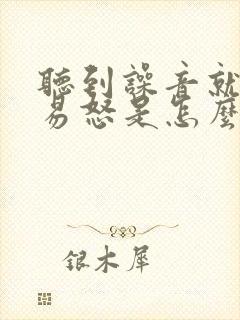 聽到譟音就
易怒是怎麼
銀木犀